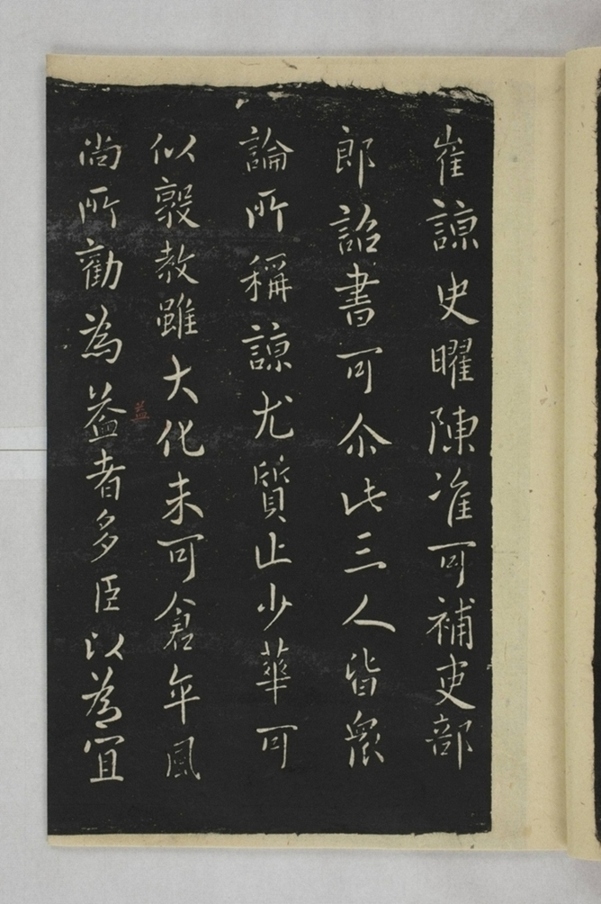 崔諒史曜陳准可補吏部
郎詔書可尒此三人皆衆
論所稱諒尤質止少華可
以敦教雖大化未可倉卒風
尚所勸為益者多臣以為宜
益